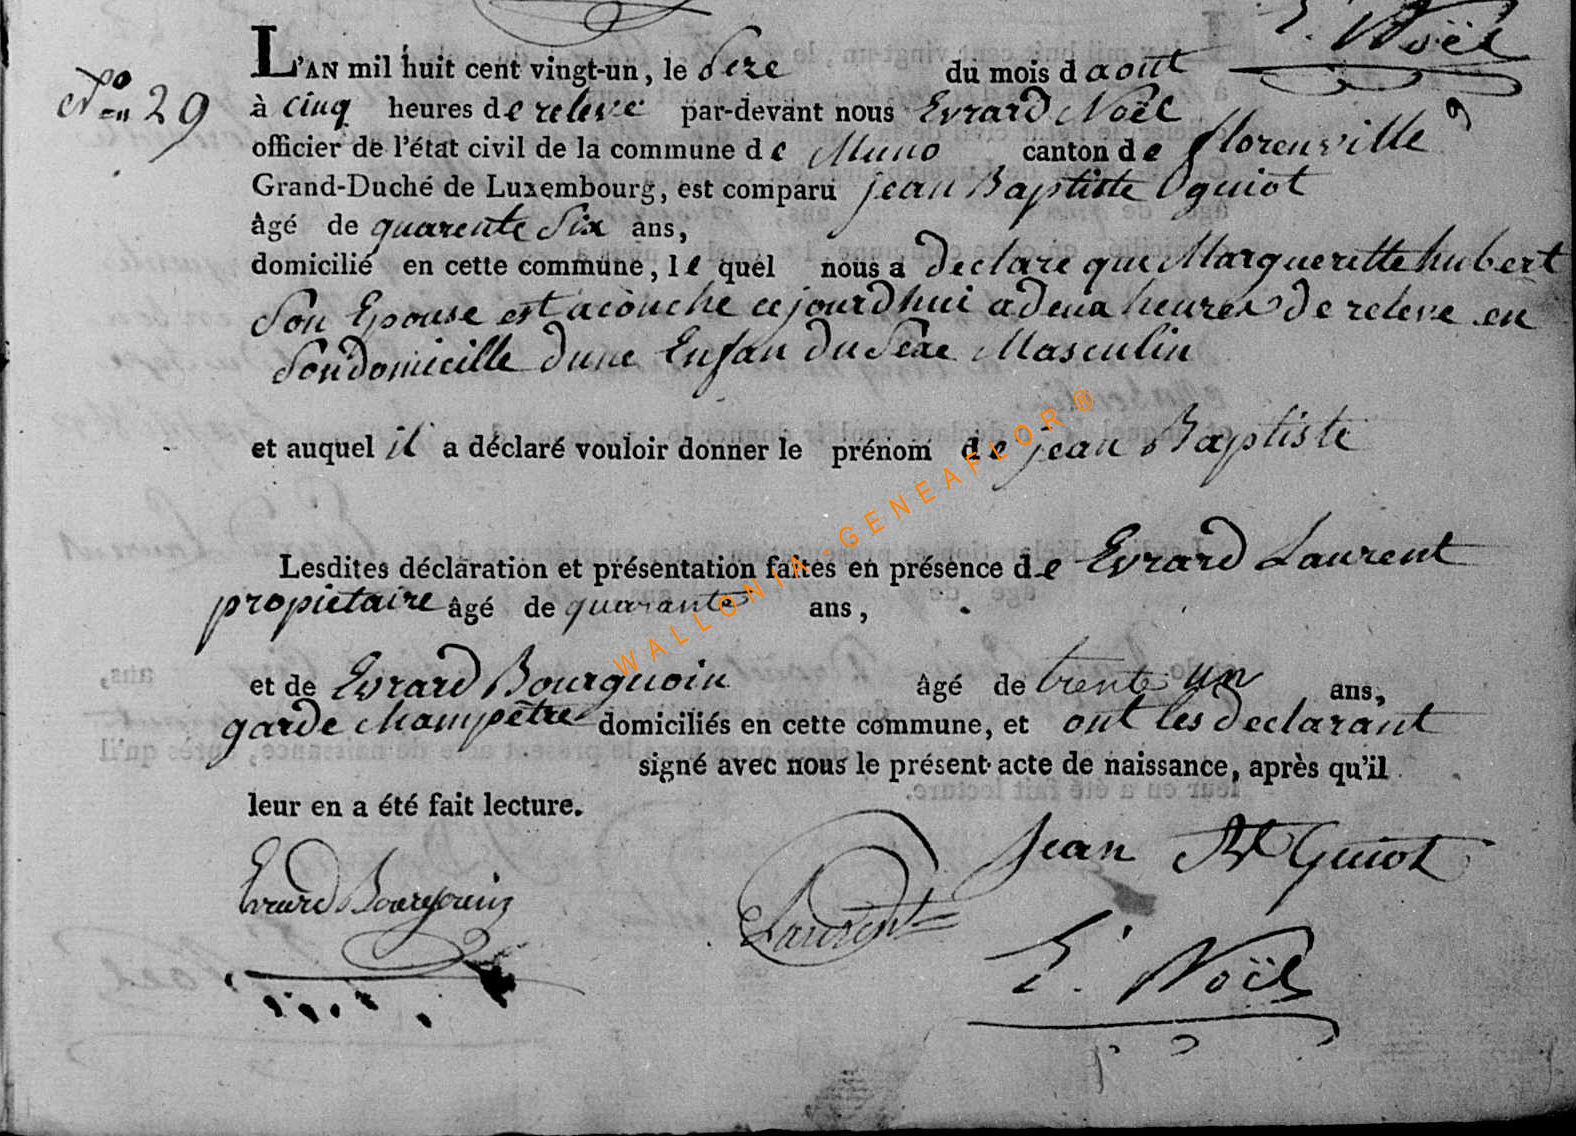 E. Noël
N.º 29
L'AN mil huit cent vingt-un, le Seze du mois d aout
à cinq heures de releve par-devant nous Evrard Noël
officier de l'état civil de la commune de Muno canton de florenville
Grand-Duché de Luxembourg, est comparu jean Baptiste Oguiot
âgé de quarente Six ans,
domicilié en cette commune, le quel nous a declare que Marguerette hubert
Son Epouse est acouche cejourdhui a deux heures de releve en
Son domicille dune Enfan du Sexe Masculin
et auquel il a déclaré vouloir donner le prénom de jean Baptiste
Lesdites déclaration et présentation faites en présence de Evrard Laurent
propietaire âgé de quarante ans,
et de Evrard Bourguoin âgé de trente un ans,
garde champêtre domiciliés en cette commune, et ont les declarant
signé avec nous le présent acte de naissance, après qu'il
leur en a été fait lecture.
Jean Bte Guiot
Evrard Bourgouin
Laurent
E. Noël
WALLONIA-GENEAFLOR®